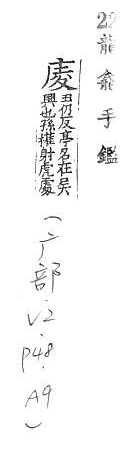 龍龕手鑑
庱
丑仍反亭名在吳
興也孫權射虎處
(广部.V2.P48.A9)